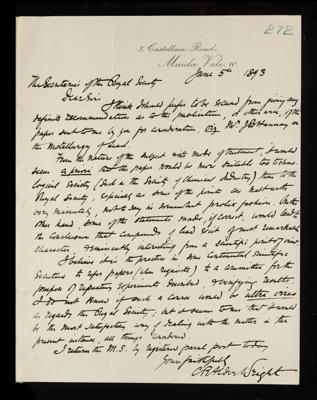 272
3, Castellain Road,
Maida Vale, W.
June 5th 1893
The Secretaries of the Royal Society
Dear Sir
I think I should prefer to be excused from giving any
definite recommendation as to the publication, or otherwise, of the
paper sent to me by you for consideration, viz Mr. J B Hannay on
the Metallurgy of Lead.
From the nature of the subject and mode of treatment, it would
seem a priori that the paper would be more suitable to a techno-
logical Society (such as the Society of Chemical Industry) than to the
Royal Society, especially as some of the points are dealt with
very minutely, not to say in somewhat prolix fashion. On the
other hand, some of the statements made, if correct, would lead to
the conclusion that compounds of lead exist of most remarkable
character & eminently interesting from a scientific point of view.
I believe it is the practice in some Continental Scientific
Societies to refer papers (when requisite) to a committee for the
purpose of repeating experiments described, & verifying results.
I do not know if such a course would be ultra vires
as regards the Royal Society, but it seems to me that it would
be the most satisfactory way of dealing with the matter in the
present instance, all things considered.
I return the M.S. by registered parcel post today
Yours faithfully
C R Alder Wright